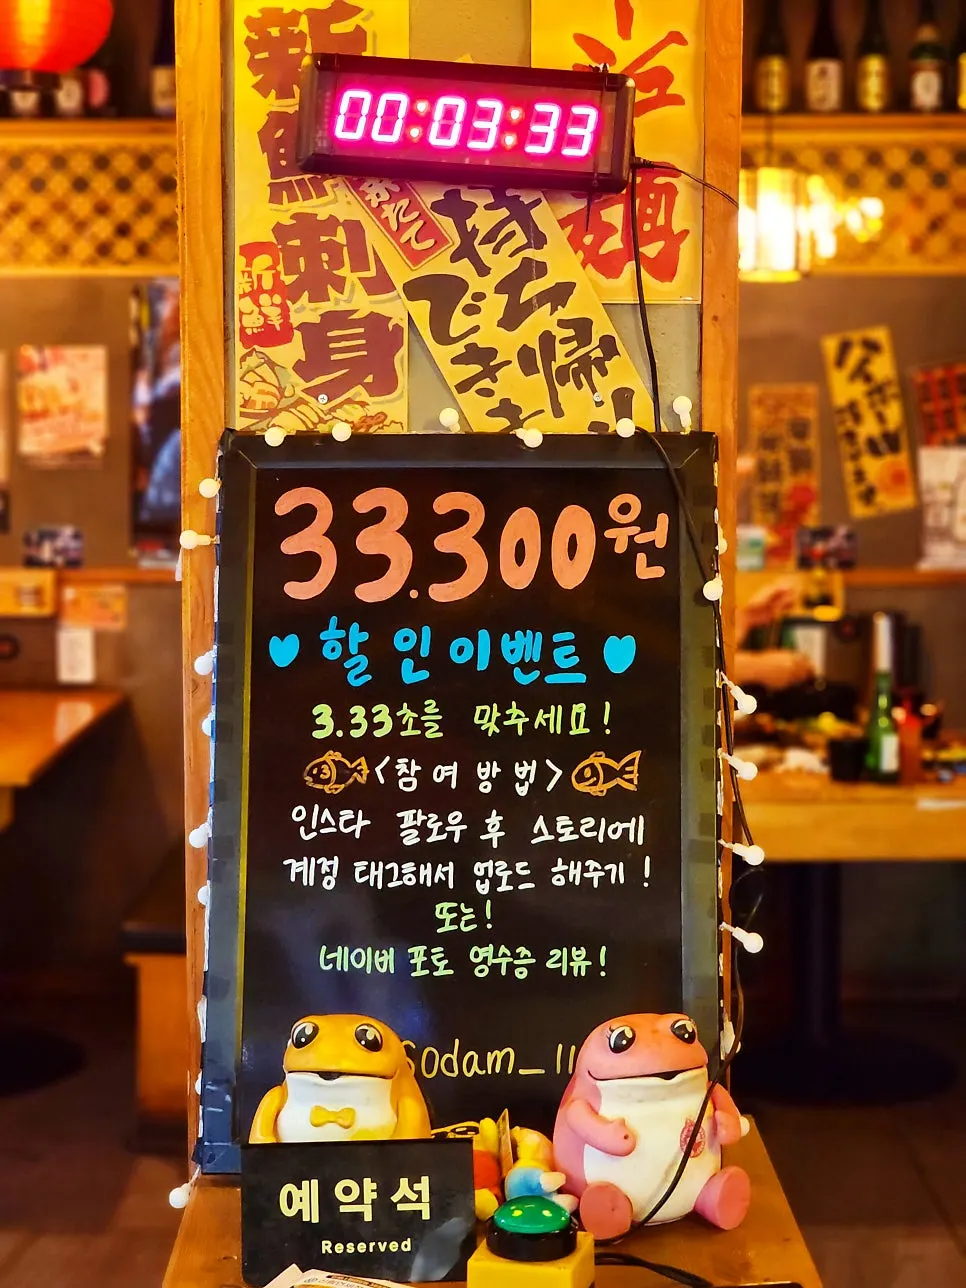 00:03:33
新鮮
刺身
新鮮
持ち帰
でき
33.300원
♥ 할인이벤트 ♥
3.33초를 맞추세요!
<참여방법>
인스타 팔로우 후 스토리에
계정 태그해서 업로드 해주기!
또는!
네이버 포토 영수증 리뷰!
sodam_11
예약석
Reserved